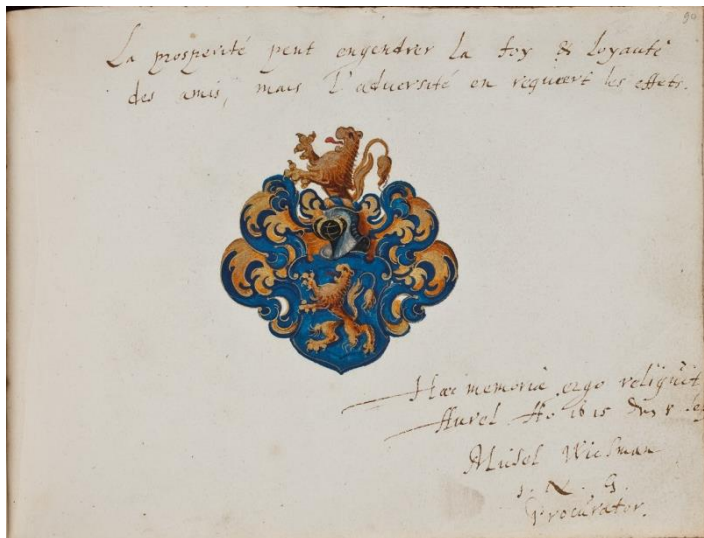 90
La prosperité peut engendrer la foy & loyauté
des amis, mais l'aduersité en requiert les effets.
Hæc memoriæ ergo reliquit
Aurel. Aº 1615
Wichman
Procurator.